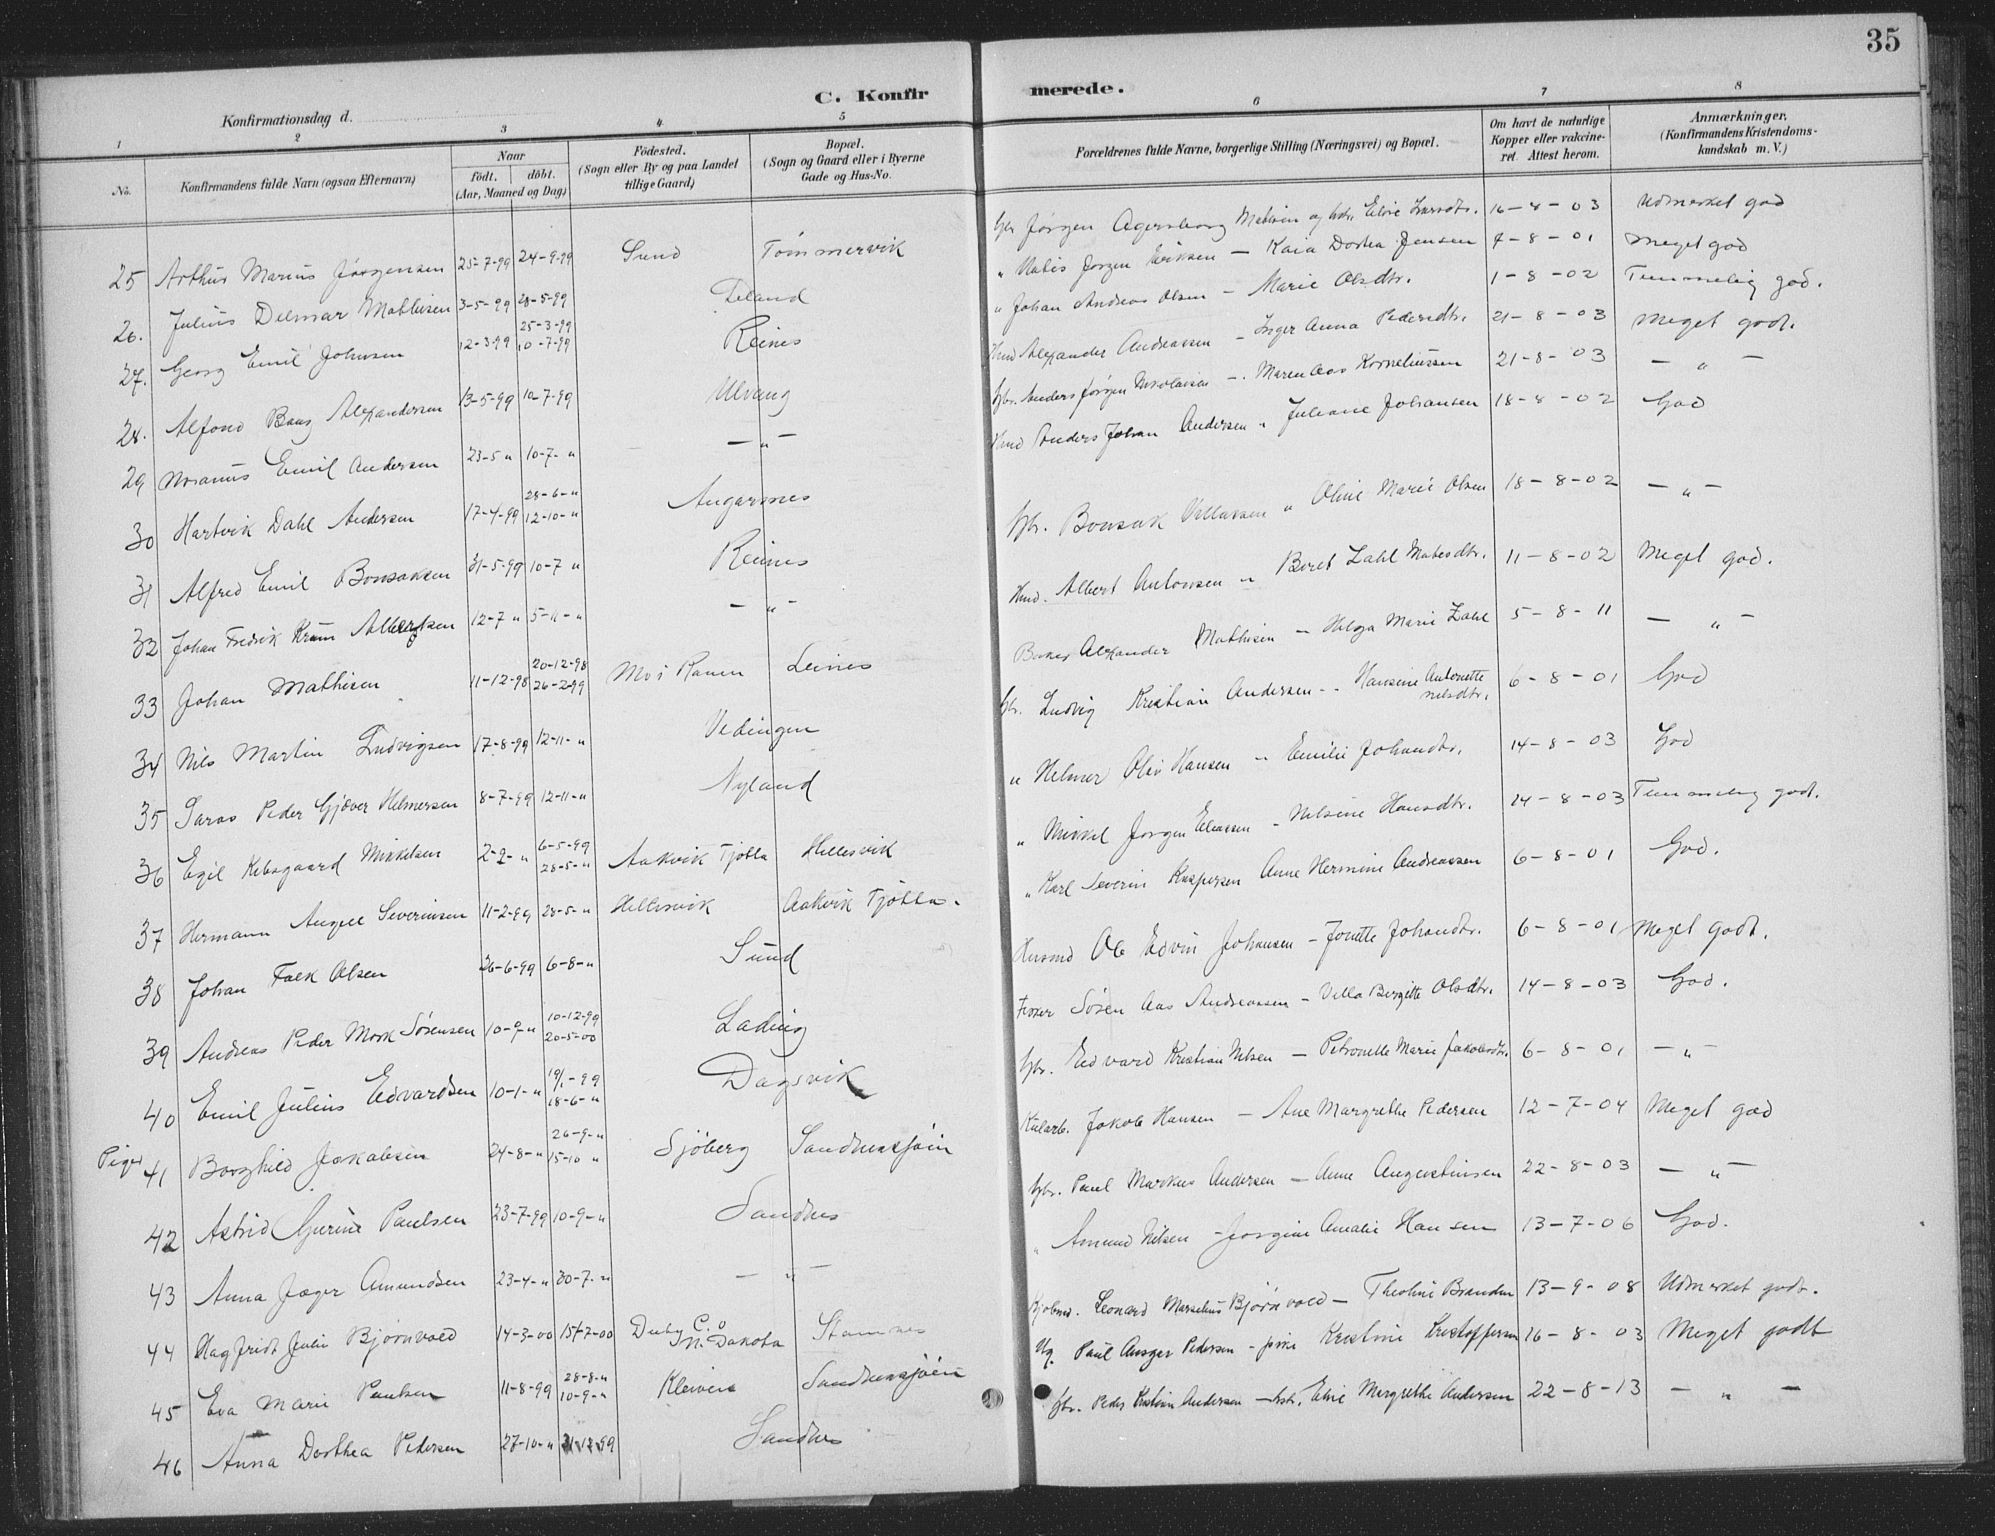 35
C. Konfir merede.
Konfirmationsdag d.
1 2 3 4 5 6 7 8
No.
Konfirmandens fulde Navn (ogsaa Efternavn)
Naar
födt. döbt.
(Aar, Maaned og Dag)
Födested.
(Sogn eller By og paa Landet
tillige Gaard)
Bopæl.
(Sogn og Gaard eller i Byerne
Gade og Hus-No.
Forældrenes fulde Navne, borgerlige Stilling (Næringsvei) og Bopæl.
Om havt de naturlige
Kopper eller vakcine-
ret. Attest herom.
Anmærkninger.
(Konfirmandens Kristendoms-
kundskab m. V.)
25 Arthur Marius Jørgensen 25-7-99 24-9-99 Sund Tømmervik Jørgen Agersborg 16-8-03 Udmerket god
26. Julius Delmar Mathisen 3-5-99 28-5-99 Deland " Jørgen Eriksen — Kaia Dortea Jensen 7-8-01 Meget god
27. Georg Emil Johnsen 12-3-99 25-3-99 10-7-99 Reines " Johan Andreas Olsen — Marie Olsdtr. 1-8-02 Temmelig god.
28. Alfond Alexandersen 13-5-99 10-7-99 Ulvang Alexander Andreassen — Inger Anna Pedersdtr. 21-8-03 Meget godt.
29 Emil Andersen 23-5 " 10-7- " — " — Gbr. Anders Jørgen Nikolaisen — Maren Aas Korneliussen 21-8-03 — " —
30 Hartvik Dahl Andersen 17-4-99 28-6-" 12-10-" Angarsnes Anders Johan Andersen " Juliane Johansen 18-8-02 God
31 Alfred Emil Bonsaksen 31-5-99 10-7 " Reines Gbr. Bonsak " Oline Marie Olsen 18-8-02 — " —
32 Johan Fredrik Krum 12-7 " 5-11-" — " — Albert Antonsen " Beret Zahl Matesdtr. 11-8-02 Meget god.
33 Johan Mathisen 11-12-98 20-12-98 26-2-99 Mo i Ranen Leines Alexander Mathisen — Helga Marie Zahl 5-8-11 — " —
34 Nils Martin Ludvigsen 17-8-99 12-11-" Vedingen Gbr. Ludvig Kristian Andersen -- Hansine Antonette Nilsdtr. 6-8-01 God
35 Peder Gjæver Helmersen 8-7-99 12-11-" Nyland " Helmer Olai Hansen " Emilie Johandtr. 14-8-03 God
36 Egil Kibsgaard Mikkelsen 2-2-" 6-5-99 28-5-" Aakvik Tjøtta Hellesvik " Mikkel Jørgen Eliassen - Nelsine Hansdtr. 24-8-03 Temmelig godt.
37 Hermann Angell Severinsen 11-2-99 28-5-" Hellesvik Aakvik Tjøtta. " Karl Severin Kaspersen Anne Hermine Andreassen 6-8-01 God.
38 Johan Falk Olsen 26-6-99 6-8-" Sund Husmd Ole Edvin Johansen — Jonette Johandtr. 6-8-01 Meget godt.
39 Andreas Peder Mork Sørensen 10-9-" 10-12-99 20-5-00 Lading Fisker Søren Aas Andreassen — Birgitte Olsdtr. 14-8-03 God.
40 Emil Julius Edvardsen 10-1-" 19/1-99 18-6-" Dagsvik Gbr. Edvard Kristian Nilsen — Petronelle Marie Jakobsdtr. 6-8-01 — " —
Piger 41 Borghild Jakobsen 24-8-" 26-9-" 15-10 " Sjøberg Sandnessjøen Jakob Hansen — Ane Margrethe Pedersen 12-7-04 Meget god
42 Astrid Gurine Paulsen 23-7-99 10-9-" Sandnes Gbr. Paul Markus Andersen — Anne Augustinsen 22-8-03 — " —
43 Anna Jæger Amundsen 23-4-" 30-7-" — " — " Amund Nilsen — Jorgine Amalie Hansen 13-7-06 God.
44 Hagfridt Julie Bjørnvold 14-3-00 15/7-00 N. Dakota Stamnes Kjøbmd. Leonard Marselius Bjørnvold — Theoline Branden 13-9-08 Udmerket godt.
45 Eva Marie Paulsen 11-8-99 28-8-" 10-9-" Kleiven Sandnessjøen Ug. Paul Ansger Pedersen - pike Kristine Kristoffersen 16-8-03 Meget godt
46 Anna Dorthea Pedersen 27-10-" 31-12-99 Sandnes Gbr. Peder Kristian Andersen — hstr. Eline Margrethe Andersen 22-8-13 — " —